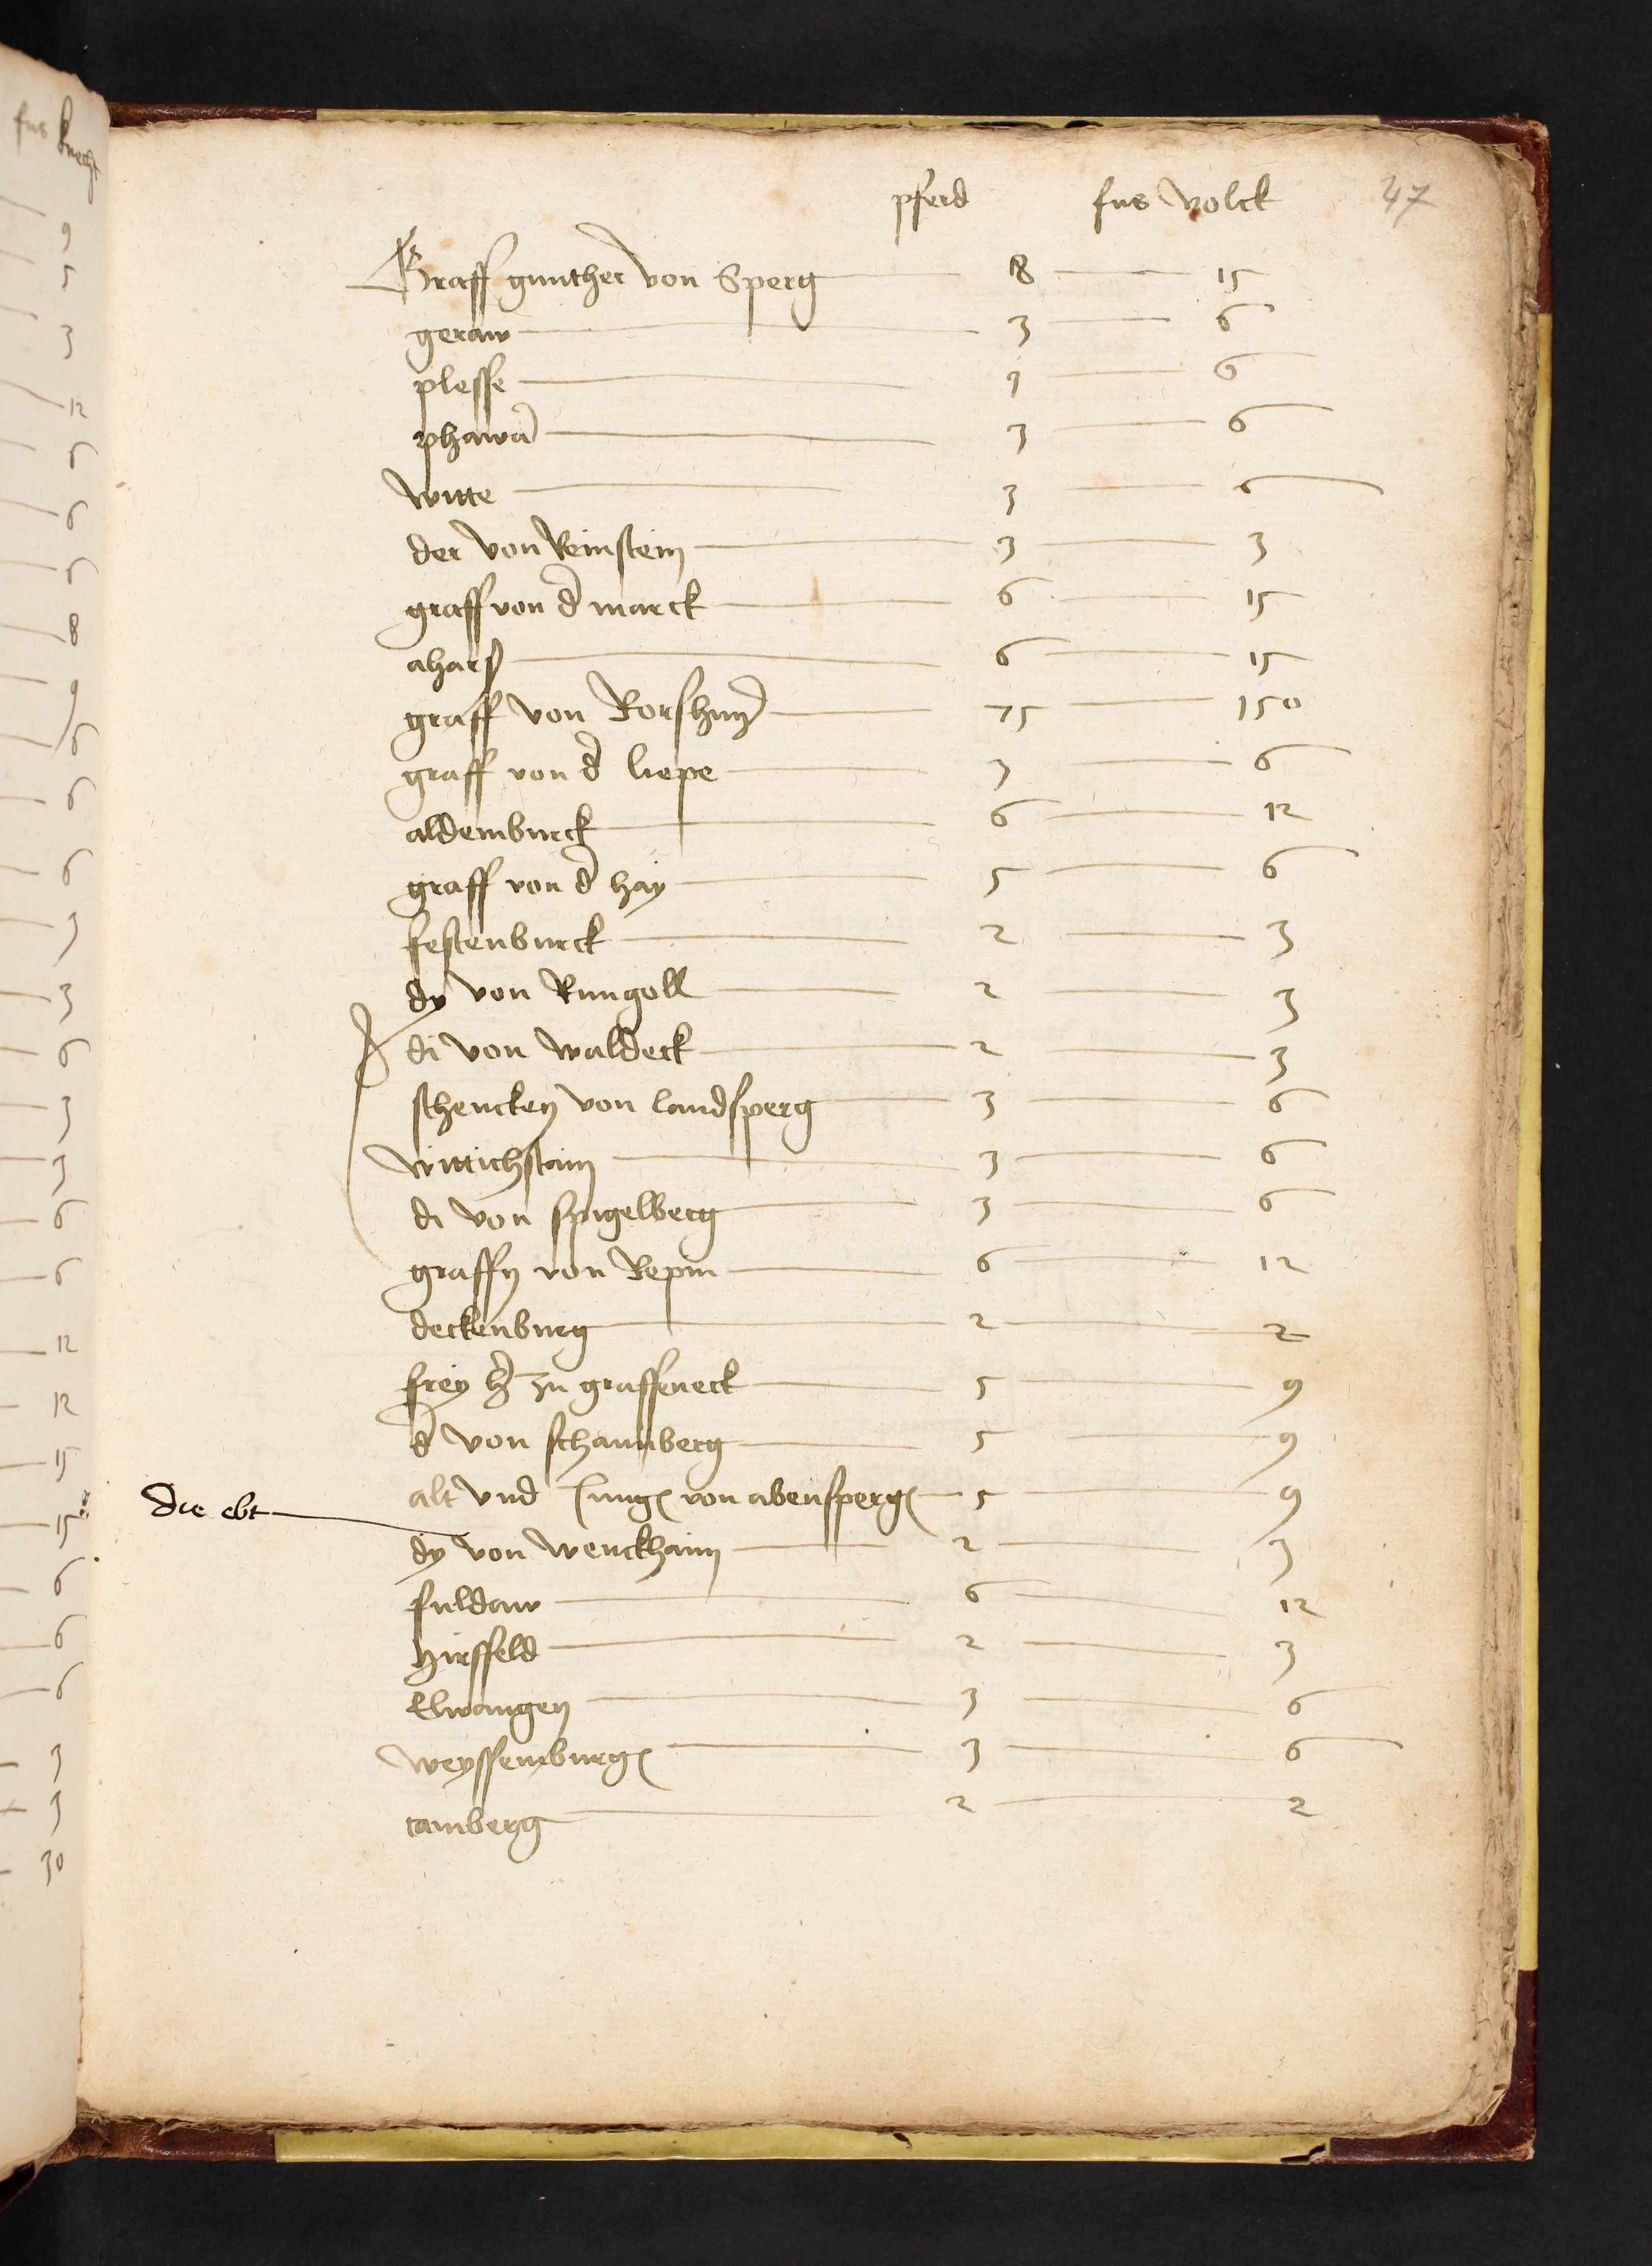 pferd fus volck 47
Graff gunther von Sperg 18 15
geraw 3 6
plesse 3 6
phawa 3 6
witte 3 6
der von Reinstein 3 3
graff von d marck 6 15
ahars 6 15
graff von 75 150
graff von d liepe 3 6
aldemburck 6 12
graff von d hay 5 6
festenburck 2 3
dy von Rungoll 2 3
di von waldeck 2 3
schencken von landsperg 3 6
wittichstain 3 6
di von spigelberg 3 6
graffn von Repin 6 12
deckenburg 2 2
frey h zu graffeneck 5 9
d von schaunberg 5 9
alt vnd Jung von abensperg 5 9
die ebt
dy von wenckhaim 2 3
fuldaw 6 12
hirsfeld 2 3
Elwangen 3 6
weyssemburg 3 6
camberg 2 2
fus knecht
9
5
3
12
6
6
6
8
9
6
6
6
3
3
6
3
3
6
6
12
12
15
15
6
6
6
3
3
30